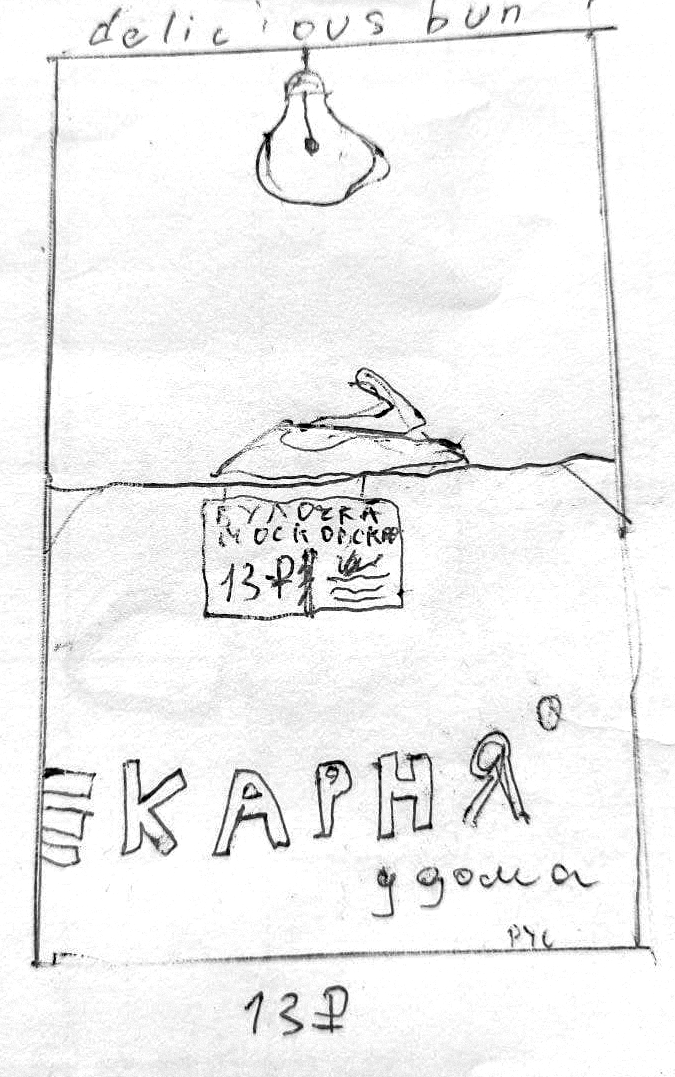 delicious bun !
БУЛОЧКА
МОСКОВСКАЯ
13₽
ЕКАРНЯ
у дома
РУС
13₽